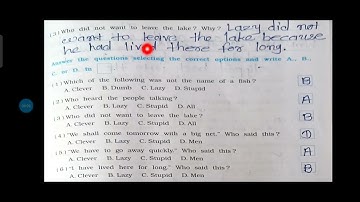 (3) Who did not want to leave the lake? Why? Lazy did not
want to leave the lake because
he had lived there for long.
Answer the questions selecting the correct options and write A., B.,
C. or D. in
(1) Which of the following was not the name of a fish? B
A. Clever B. Dumb C. Lazy D. Stupid
(2) Who heard the people talking? A
A. Clever B. Lazy C. Stupid D. All
(3) Who did not want to leave the lake? B
A. Clever B. Lazy C. Stupid D. All
(4) "We shall come tomorrow with a big net." Who said this? D
A. Clever B. Lazy C. Stupid D. Men
(5) "We have to go away quickly." Who said this? A
A. Clever B. Lazy C. Stupid D. Men
(6) "I have lived here for long." Who said this? B
A. Clever B. Lazy C. Stupid D. Men